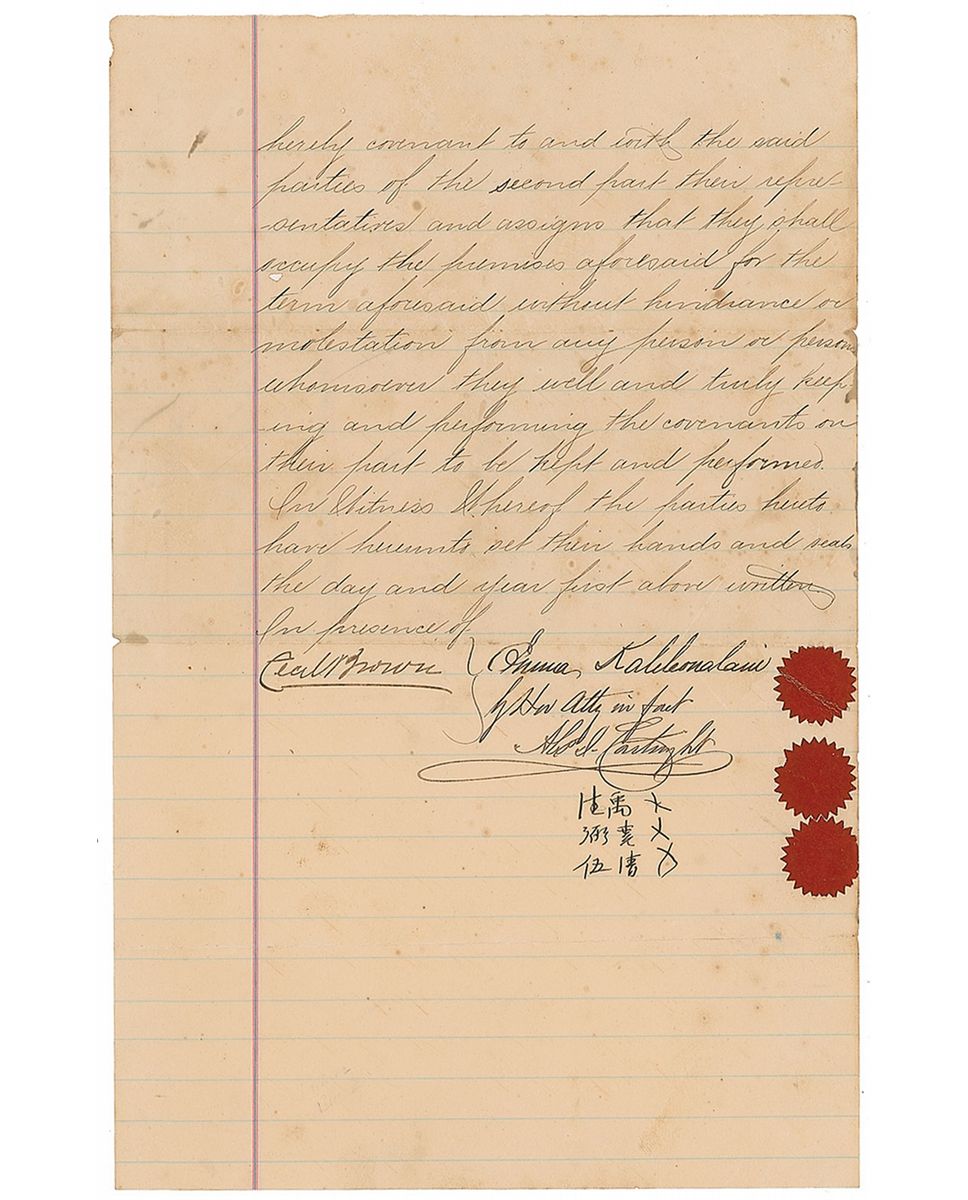 hereby covenant to and with the said
parties of the second part their repre-
-sentatives and assigns that they shall
occupy the premises aforesaid for the
term aforesaid without hindrance or
molestation from any person or persons
whomsoever they well and truly keep-
-ing and performing the covenants on
their part to be kept and performed.
In Witness Whereof the parties hereto
have hereunto set their hands and seals
the day and year first above written
In presence of
Cecil Brown
Emma Kaleleonalani
by Her Atty in fact
Alex J. Cartwright
禹 X
X
伍 X